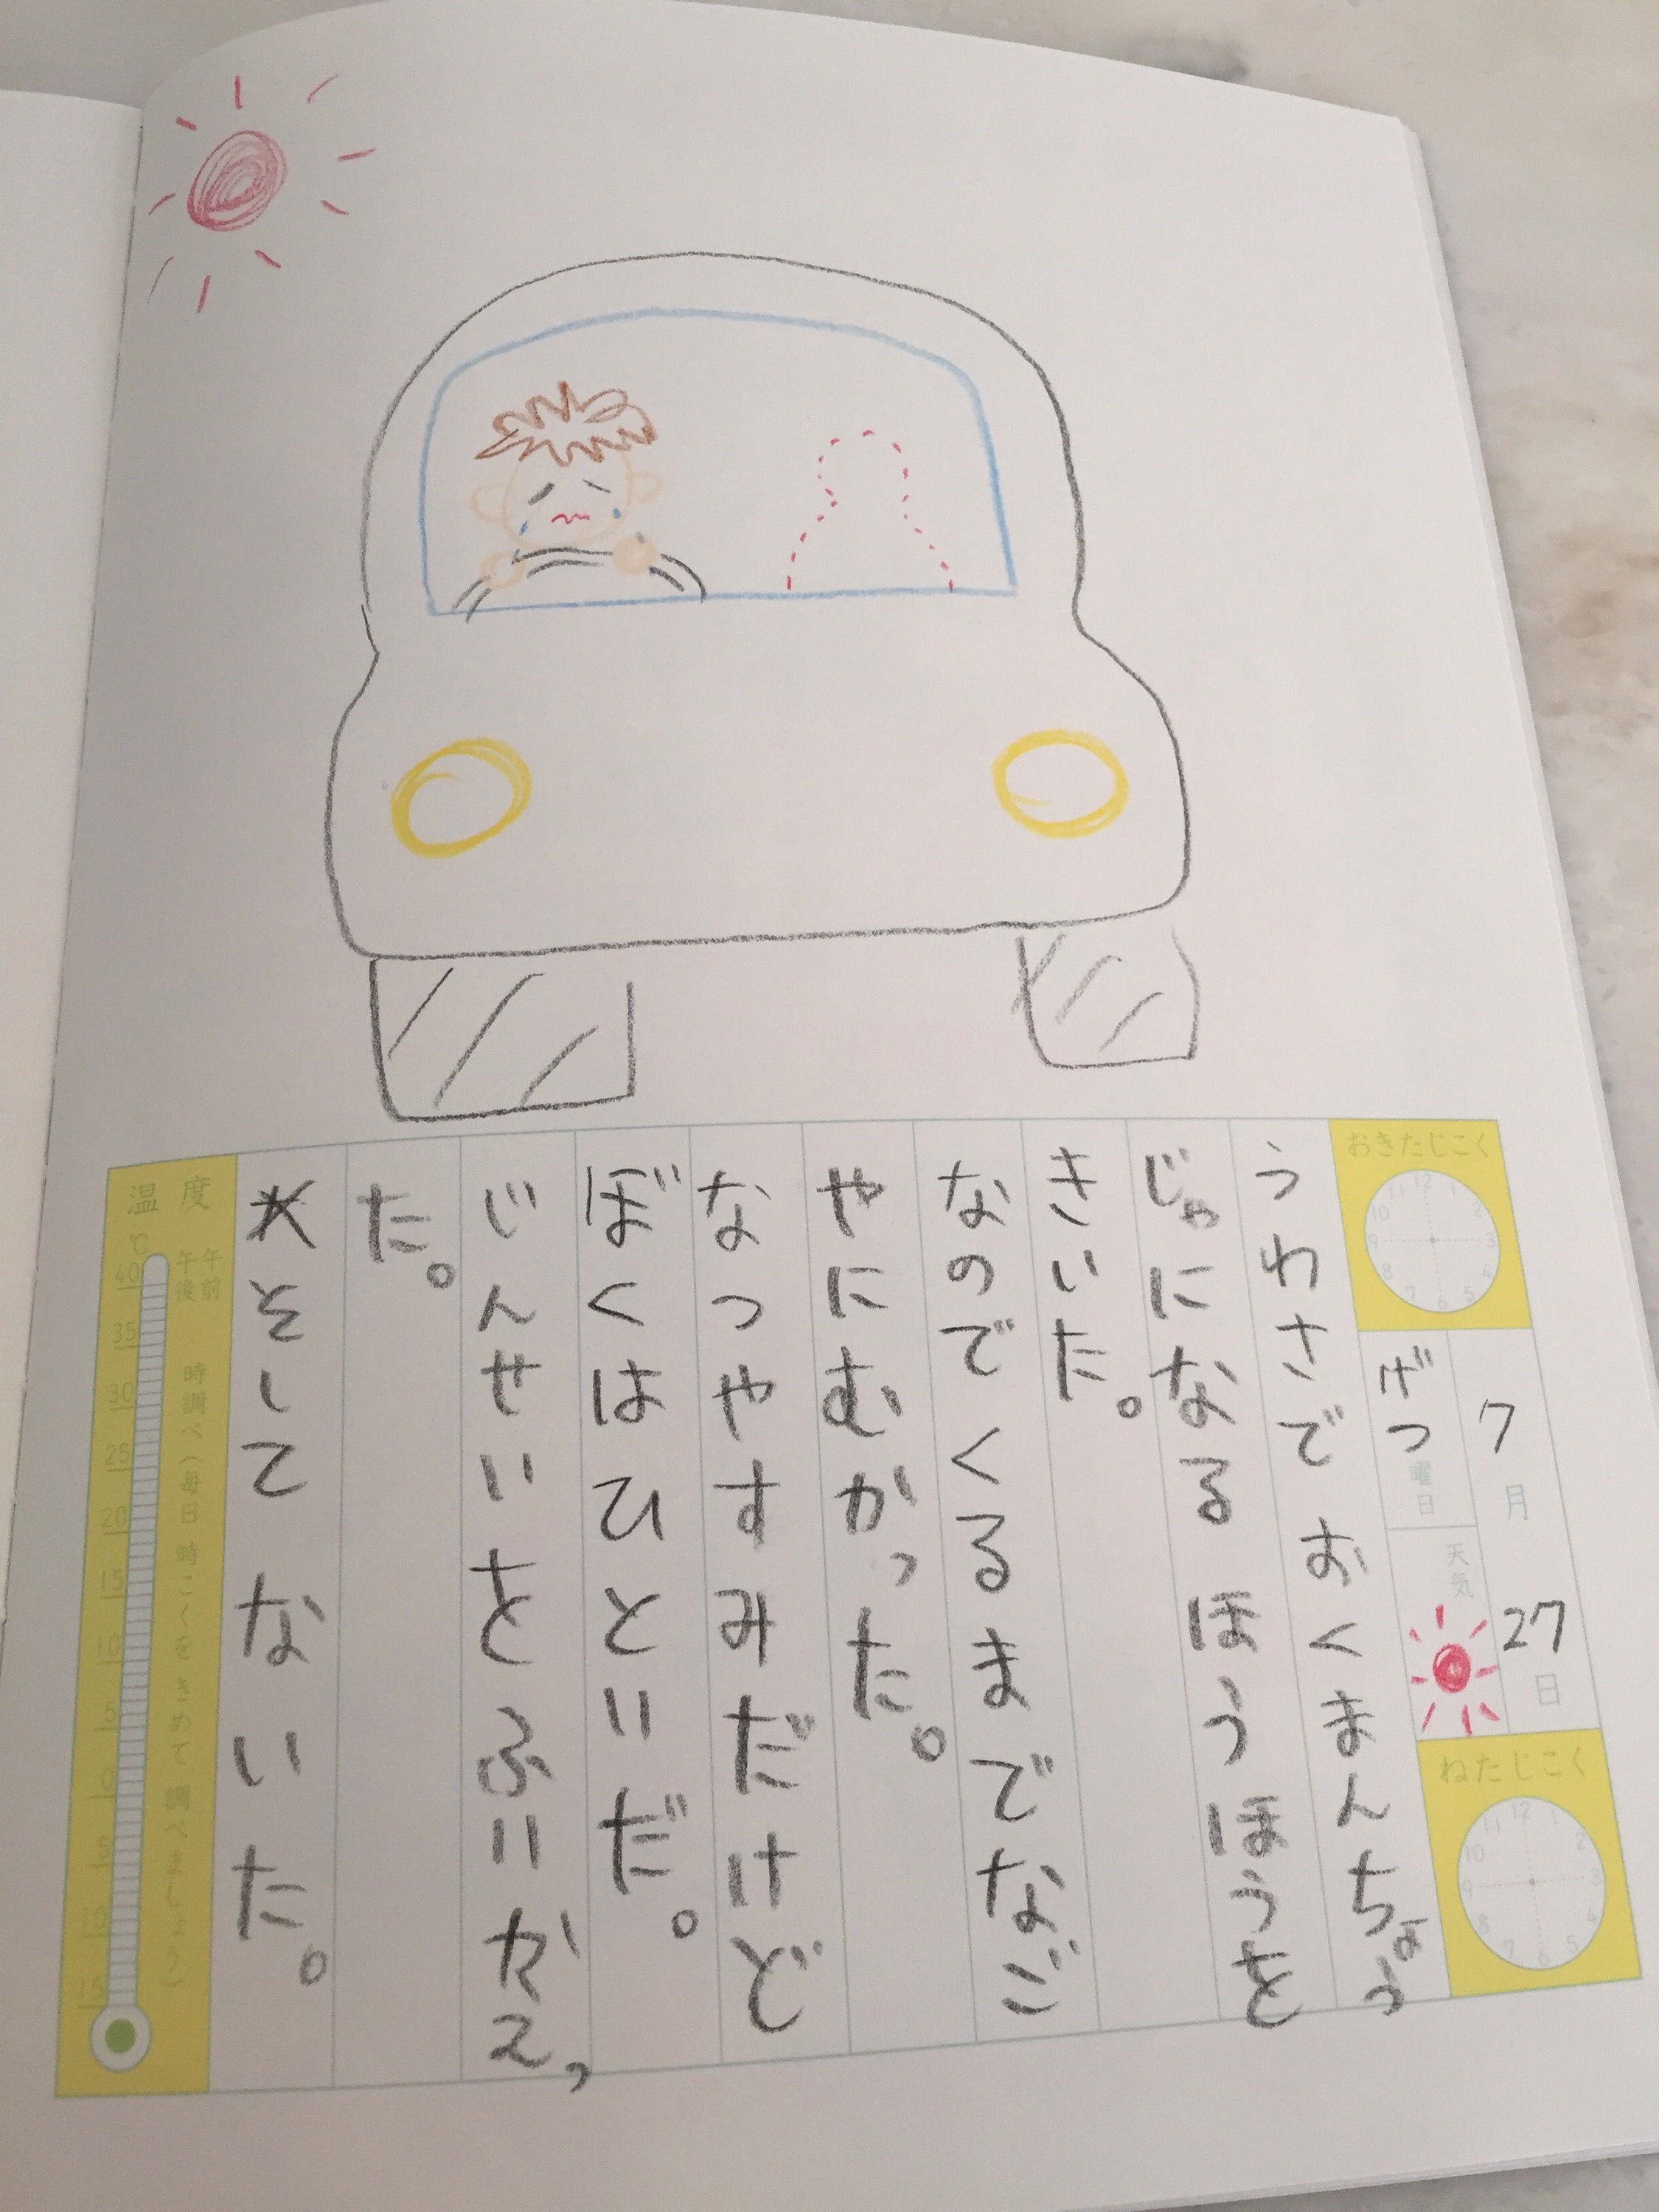 おきたじこく
7月27日
げつ曜日
天気
ねたじこく
うわさで おくまんちょう
じゃになる ほうほうを
きいた。
なのでくるまでなご
やにむかった。
なつやすみだけど
ぼくはひとりだ。
じんせいをふりかえっ
た。
そして ないた。
温度
℃
午前
午後
時調べ(毎日時こくをきめて調べましょう)
40
35
30
25
20
15
10
5
0
5
10
15